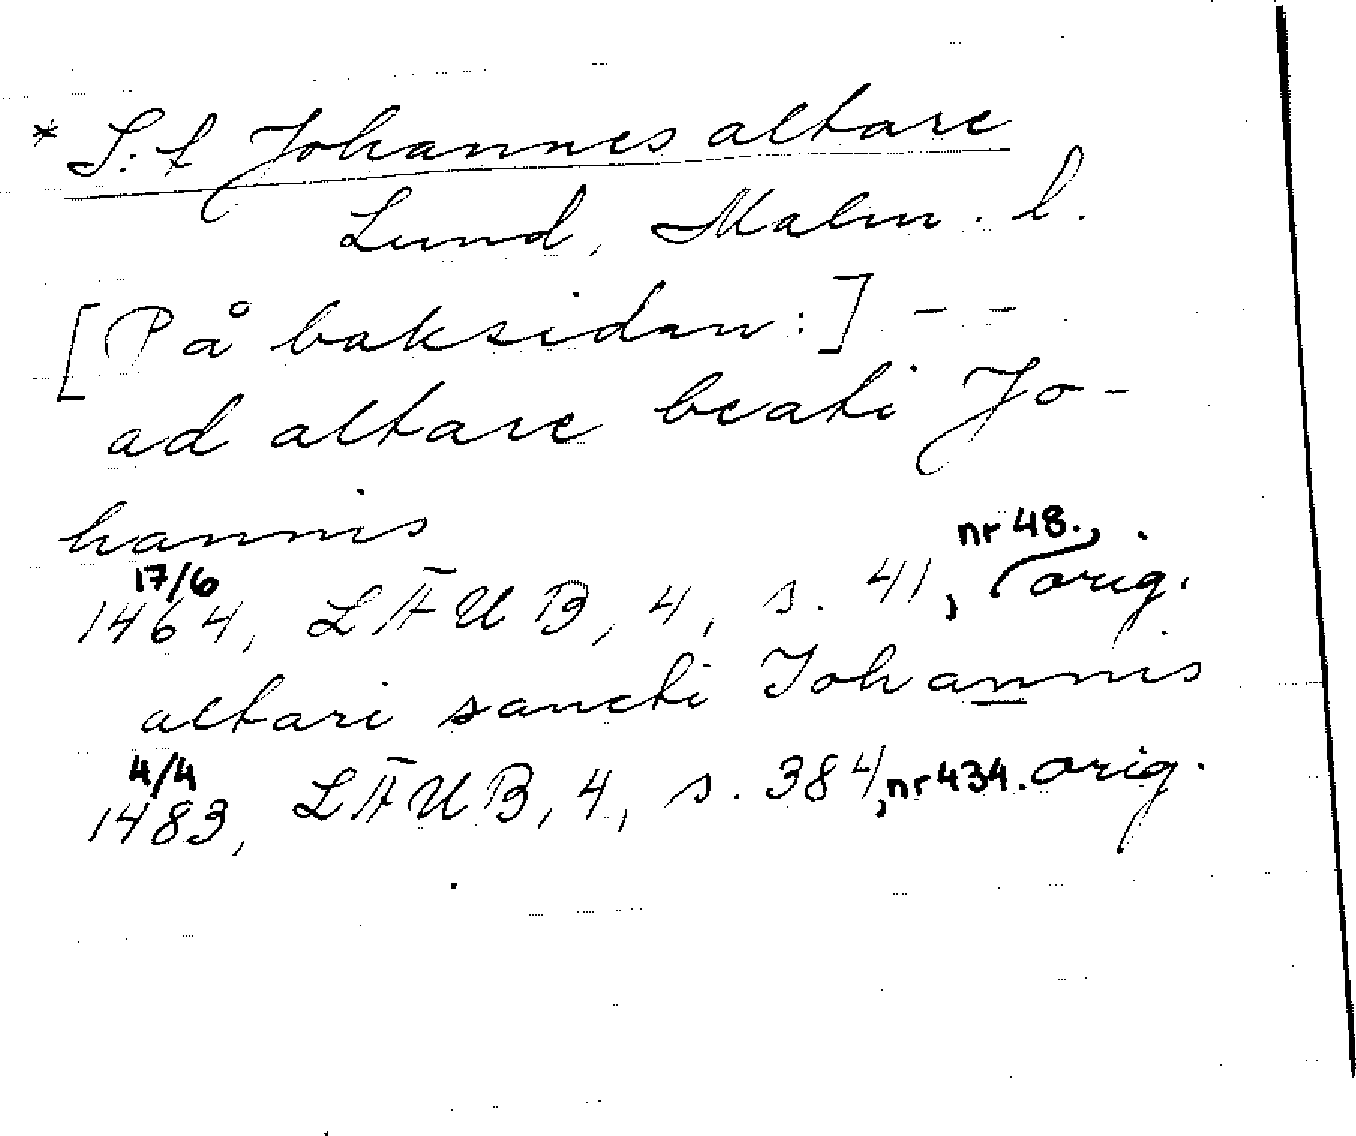 * S:t Johannes altare
Lund, Malm. l.
[På baksidan:] - -
ad altare beati Jo-
hannis
17/6 nr 48.,
1464, LÄUB, 4, s. 41, orig.
altari sancti Johannis
4/4
1483, LÄUB, 4, s. 384, nr 434. orig.